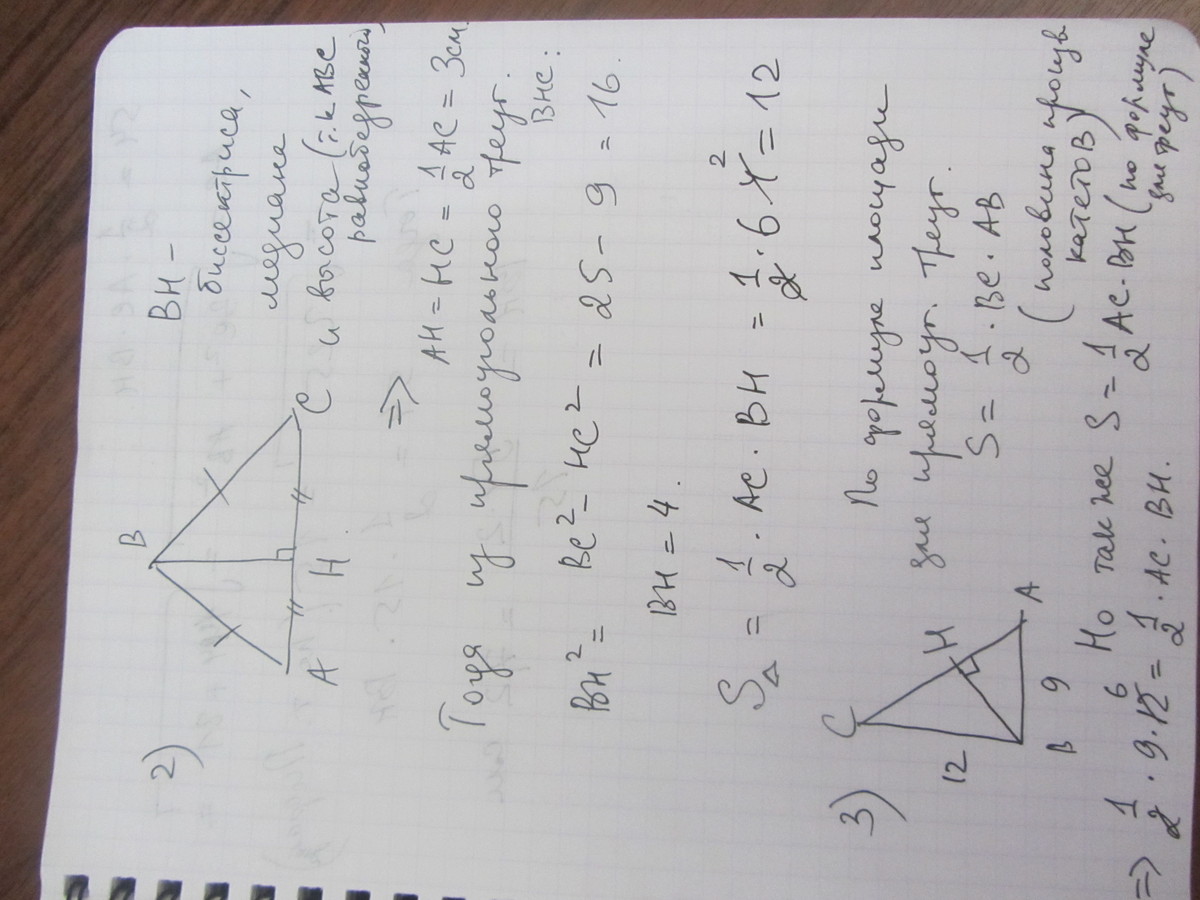 2)
B
A
H
C
BH –
биссектриса,
медиана
и высота (т.к ABC
равнобедренный)
=> AH = HC = 1/2 AC = 3см.
Тогда из прямоугольного треуг.
BHC:
BH² = BC² – HC² = 25 – 9 = 16.
BH = 4.
S△ = 1/2 · AC · BH = 1/2 · 6 · 4 2 = 12
3)
C
12
H
B
9
A
По формуле площади
для прямоуг. треуг.
S = 1/2 · BC · AB
(половина произв
катетов)
Но также S = 1/2 AC · BH (по формуле
для треуг)
=> 1/2 · 9 · 12 6 = 1/2 · AC · BH.